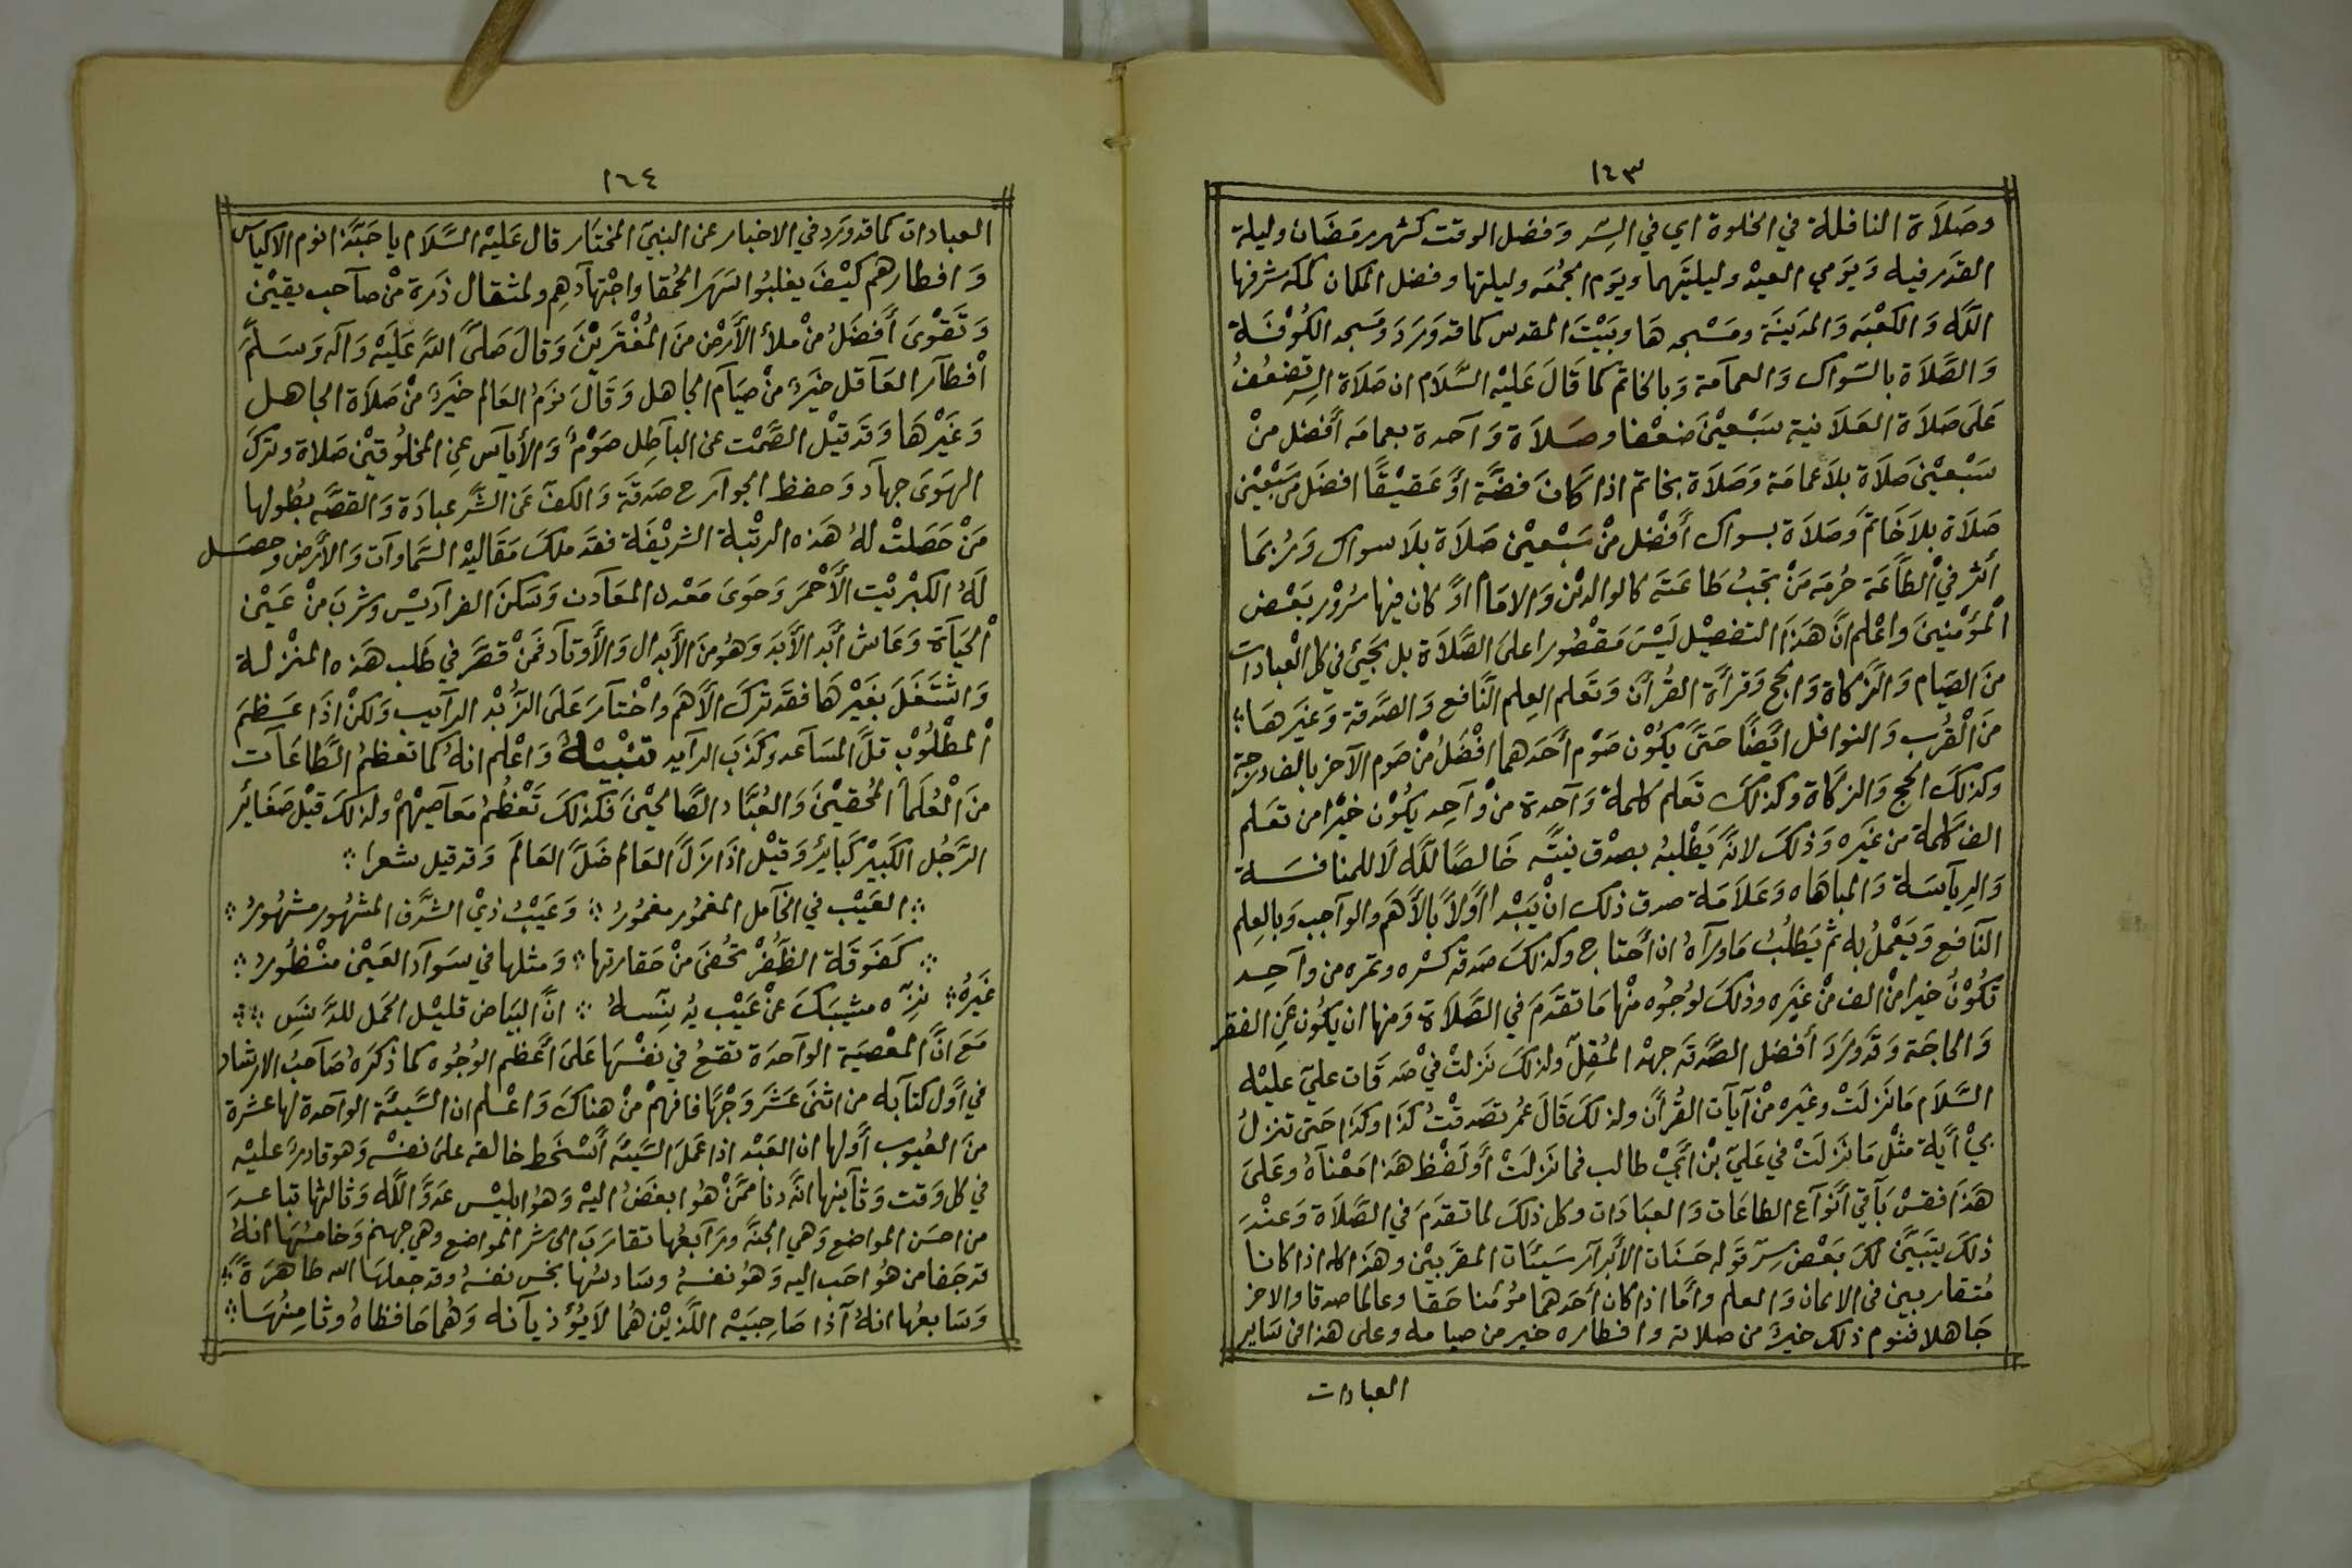 ١٤٣
وصَلَاة النافلة في الخلوة اي في السِّر وَفضَل الوقت كشهر رمَضَان وليلة
القدَر فيه وَيوَمي العيْد وليليتَهما ويوَم الجُمُعَه وليلتها وفضل المكان كمكه شرفها
اللّه وَالكعْبَه وَالمدَينَة ومَسْجدهَا وبَيْتَ المقدس كما قد وَرَدَ وَمَسجد الكُوْفَة
وَالصَّلَاة بالسَواك وَالعمآمة وَبالخاتَم كما قَالَ عَليْه السَّلَام ان صَلَاة السِر تضعُفُ
عَلَى صَلاَة العَلَانية سَبْعيْنَ ضعْفا وصَلَاة وَآحدة بعمامَه أَفضل منْ
سَبْعيْن صَلَاة بلَا عمامَة وَصَلَاة بخاتم اذا كَانَ فضَّة أوْ عَقيْقًا افضَل منَ سَبْعيْن
صَلَاة بلاَ خَاتَم وَصَلَاة بسواك أَفْضل منْ سَبْعيْن صَلَاة بلَا سواك وَرُبمَا
أثر فيْ الطَّاعَة حُرمَه مَنْ تجبُ طَاعَتَه كالوالديْن وَالامَام اوْ كان فيها سُرُوْر بَعْض
الْمؤْمنينَ واعْلم انَّ هَذَا التفصيْل ليْسَ مَقْصُورا علىَ الصَّلَاة بل يجَيئ في كل العْبادات
منَ الصيَام وَالزَّكاة وَالحج وَقرأَة القُرأَن وَتَعلم العِلم النَّافع وَالصَّدقة وَغيَرهَا
منَ الْقُرب وَالنوافل ايَضًا حَتىَّ يكُوْن صَوْم أحَدَهما افْضَلُ منْ صَوم الآخر بالف درجة
وكذلكَ الحج وَالزكَاة وكذلكَ تعَلم كلمة وَآحدة منْ وَآحِد يكُوْن خيْرا من تعَلم
الف كلمة من غيَره وَذلكَ لانَّه يَطْلبُه بصدْق نيَّتَه خَالصًا للّه لَا للمنافسَة
وَالرِيآسَة وَالمباهَاه وَعَلَامَة صدق ذلك انْ يَبْدا أوَّلاً بالأهَم والوآجب وَبالعِلم
النَآفع وَيَعْملُ به ثم يَطلُبُ مَا ورآهُ ان أحتاج وكذلكَ صَدقه كسْره وتمَره من وآحِد
تكُوْنُ خيرا منْ الف منْ غيَره وذلكَ لوُجُوه منْها مَا تقدَّمَ في الصَّلَاة وَمنها ان يكُون عَنِ الفقر
وَالحاجَة وَقدَ ورَدَ أفضَل الصَّدقَه جهدْ المُقِلّ ولذلكَ نَزلَتْ فيْ صَدقَات عليّ عليْه
السَّلَام مَا نَزلَتْ وغيَره منْ آيآت القُرأَن ولذلكَ قَالَ عمُر تصَدقْتُ كذَا وكذَا حَتى تنزلُ
بيْ أَيَة مثْل مَا نَزلَتْ في عَليّ بْن أبَيْ طالب فما نَزلَتْ أوْ لَفْظ هَذا مَعْنآهُ وعَلىَ
هَذَا فقسْ بَآقي أَنْوآع الطاعَات وَالعبَادَات وكل ذلكَ لما تقدَم في الصَّلَاة وَعنْدَ
ذلكَ يتَبيَّن لكَ بَعْض سِرّ قوَله حَسَنات الأبْرآر سَيئَات المقرَبيْن وهَذا كله اذا كانا
مُتقاربين فى الايمان وَالعلم وأمَّا اذا كان أحَدهما مؤمنا حَقا وعالما صدقا والاخر
جَاهلا فنوم ذلك خيرٌ من صلاته وافطاره خير من صيامه وعلى هذا فى سَاير
العبادات
١٦٤
العبادات كما قد ورَد في الاخبار عن النبيّ المختار قال عَليْه السَّلَام يا حَبّذا نوم الاكياس
وَافطارهم كيْفَ يغلبُوا سَهَر الحمُقا واجْتهآدهِم ولمثقال ذرَة منْ صآحب يقيْن
وَتَقْوىَ أَفضَلُ منْ ملأ الأَرْض منَ المُغْتَريْنَ وَقالَ صَلىَّ اللّه عَليَه وَآله وَسَلمَّ
أفْطآر العَآقل خيَرٌ منْ صيَآم الجاهل وَقَالَ نَوَمُ العَالم خَيَرٌ منْ صَلَاة الجاهل
وَغَيْرهَا وَقدَ قيْل الصَّمْت عن البآطِل صَوْمٌ وَالأيآس عنِ المخلُوقيْن صَلاة وتركَ
الهوَىَ جهآد وَحفظ الجوآرح صَدقَة وَالكف عَن الشَّر عبادَة وَالقصَّه بطُولها
مَنْ حَصَلتْ لهُ هَذه الرتْبة الشريْفَة فقدَ ملكَ مَقَاليْد السَّماوآت وَالأَرض وحصَل
لَهُ الكبْريْت الأَحْمرَ وَحَوىَ مَعْدن المعَآدن وَسَكنَ الفرآديْس وشربَ منْ عَيْن
الْحيَآة وَعَاش أبَد الأَبَد وَهُو منَ الأَبدال وَالأَوتآد فمَنْ قصَّرَ في طَلب هَذه المنْزلة
وَاشتغَلَ بغَيْرهَا فقدَ تركَ الأَهَم وَاخْتآرَ عَلىَ الزُّبْد الرآيب وَلكنْ اذَا عَظمَ
الْمطْلُوْب قلَّ المسَآعد وكَذبَ الرآيد تنبْيْهٌ وَاعْلم انهُ كما تعظمُ الطَّاعَآت
منَ الْعُلَمآ المُحقيْنَ وَالعُبَّاد الصَّالحيْنَ فكذلكَ تَعْظُمُ معَآصيْهمْ ولذلكَ قيْل صَغَائر
الرَّجُل الكَبيْر كَبائرٌ وَقيْل اذَا زَلَّ العَالم ضَلَّ العَالَم وَقد قيل شعرا
العَيْب في الخآمل المغموُر مغموُرُ وَعَيْبُ ذيْ الشَّرَف المشهُور مشهُورُ
كَفَوَقَة الظَفُرْ تخُفىَ منْ حَقارتها وَمثلها في سَوآد العَيْن منْظُورُ
غَيرَهُ نزِّه مشيبَكَ عنْ عَيْب يُدنِّسهُ انَّ البيَاض قليْل الحمَل للدَّنَسِ
مَعَ انَّ المعْصيَة الوآحدَة تقعُ في نفسْهَا عَلىَ أعَظم الوُجُوه كما ذكرَه صَآحبُ الارشاد
في أوَّل كتآبه من اثنىَ عَشَرَ وَجْهًا فافهمْ منْ هناكَ وَاعْلم ان السَّيئَة الوآحدة لها عشرة
منَ العُيوب أوَّلها ان العَبْد اذا عَملَ السَّيئَة أَسْخَط خالقه علىَ نفسْه وَهو قادرٌ عليْه
في كل وَقت وَثآنيها انَّه دنا ممنَّ هُوا بغضَ اليْه وَهُوا بليْس عَدوَّ اللّه وَثالثها تباعدَ
من احسَن المواضع وَهي الجنَّة ورَآبعُها تقارَبَ الى شر المواضع وهي جهنم وَخامسُهَا انهُ
قد جَفا من هُو احَب اليه وَهُو نفسهُ وسَادسُها نجس نفسهُ وقد جعلهَا الله طاهرَةً
وَسَابعُها انهُ آذا صَاحِبَيْه اللَّذيْن هُما لَا يُؤذيآنه وَهُما حَافظاهُ وثامِنُهَا